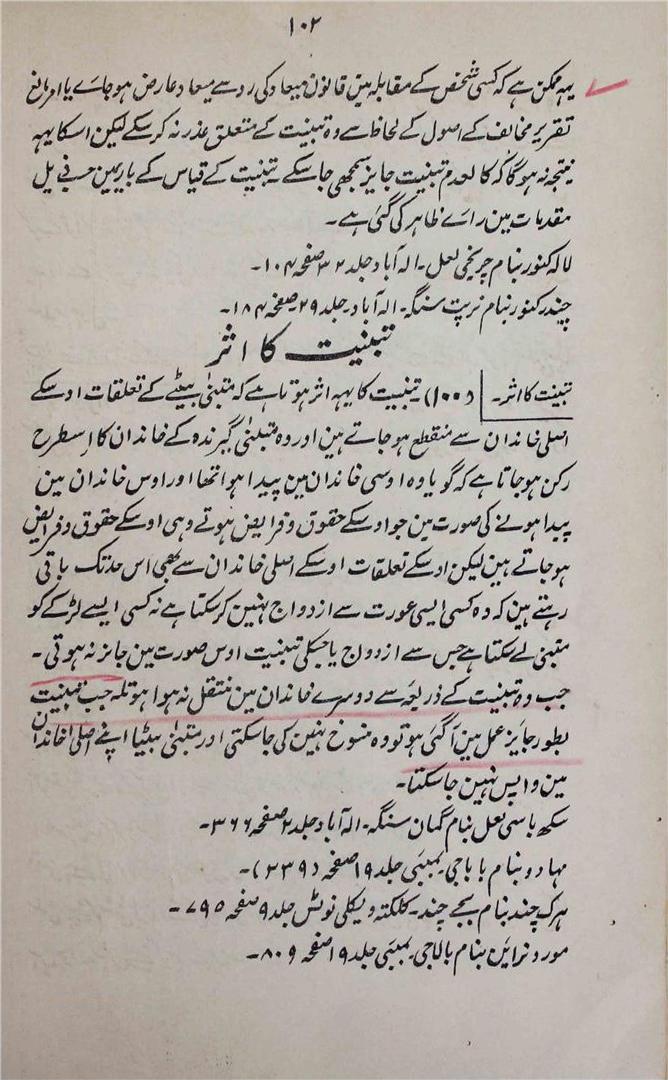 ۱۰۲
یہہ ممکن ہے کہ کسی شخص کے مقابلہ مین قانون میعاد کی رو سے میعاد عارض ہوجائے یا امر مانع
تقریر مخالف کے اصول کے لحاظ سے وہ تبنیت کے متعلق عذر نہ کرسکے لیکن اسکا یہہ
نیتجہ نہ ہوگا کہ کالعدم تبنیت جایز سمجھی جاسکے ۔ تبنیت کے قیاس کے بارہمین حسب ذیل
مقدمات مین رائے ظاہر کی گئی ہے ۔
لالہ کنور بنام چرنجی لعل ۔ الہ آباد جلد ۳۲ صفحہ ۱۰۴ ۔
چندر کنور بنام نرپت سنگہ ۔ الہ آباد ۔ جلد ۲۹ ۔ صفحہ ۱۸۴ ۔
تبنیت کا اثر
تبینت کا اثر ۔ (۱۰۰) ۔ تبنیت کا یہہ اثر ہوتا ہے کہ متبنیٰ بیٹے کے تعلقات اوسکے
اصلی خاندان سے منقطع ہوجاتے ہین اور وہ متبنیٰ گیرندہ کے خاندان کا اسطرح
رکن ہوجاتا ہے کہ گویا وہ اوسی خاندان مین پیدا ہوا تھا اور اوس خاندان مین
پیدا ہونے کی صورت مین جو اوسکے حقوق و فرایض ہوتے وہی اوسکے حقوق و فرایض
ہوجاتے ہین لیکن اوسکے تعلقات اوسکے اصلی خاندان سے بھی اس حد تک باقی
رہتے ہین کہ وہ کسی ایسی عورت سے ازدواج نہین کرسکتا ہے نہ کسی ایسے لڑکے کو
متبنیٰ لے سکتا ہے جس سے ازدواج یا جسکی تبنیت اوس صورت مین جایز نہ ہوتی ۔
جب وہ تبنیت کے ذریعہ سے دوسرے خاندان مین منتقل نہ ہوا ہوتا جب تبنیت
بطور جایز عمل مین آگئی ہو تو وہ منسوخ نہین کی جاسکتی اور متبنیٰ بیٹا اپنے اصلی خاندان
مین واپس نہین جاسکتا ۔
سکھ باسی لعل بنام گمان سنگہ ۔ الہ آباد جلد ۲ صفحہ ۳۶۶ ۔
مہادو بنام باباجی ۔ بمبئی جلد ۱۹ صفحہ (۲۳۹) ۔
ہرک چند بنام بجے چند ۔ کلکتہ ویکلی نوٹس جلد ۹ صفحہ ۷۹۵ ۔
مورو نراین بنام بالاجی ۔ بمبئی جلد ۱۹ صفحہ ۸۰۹ ۔